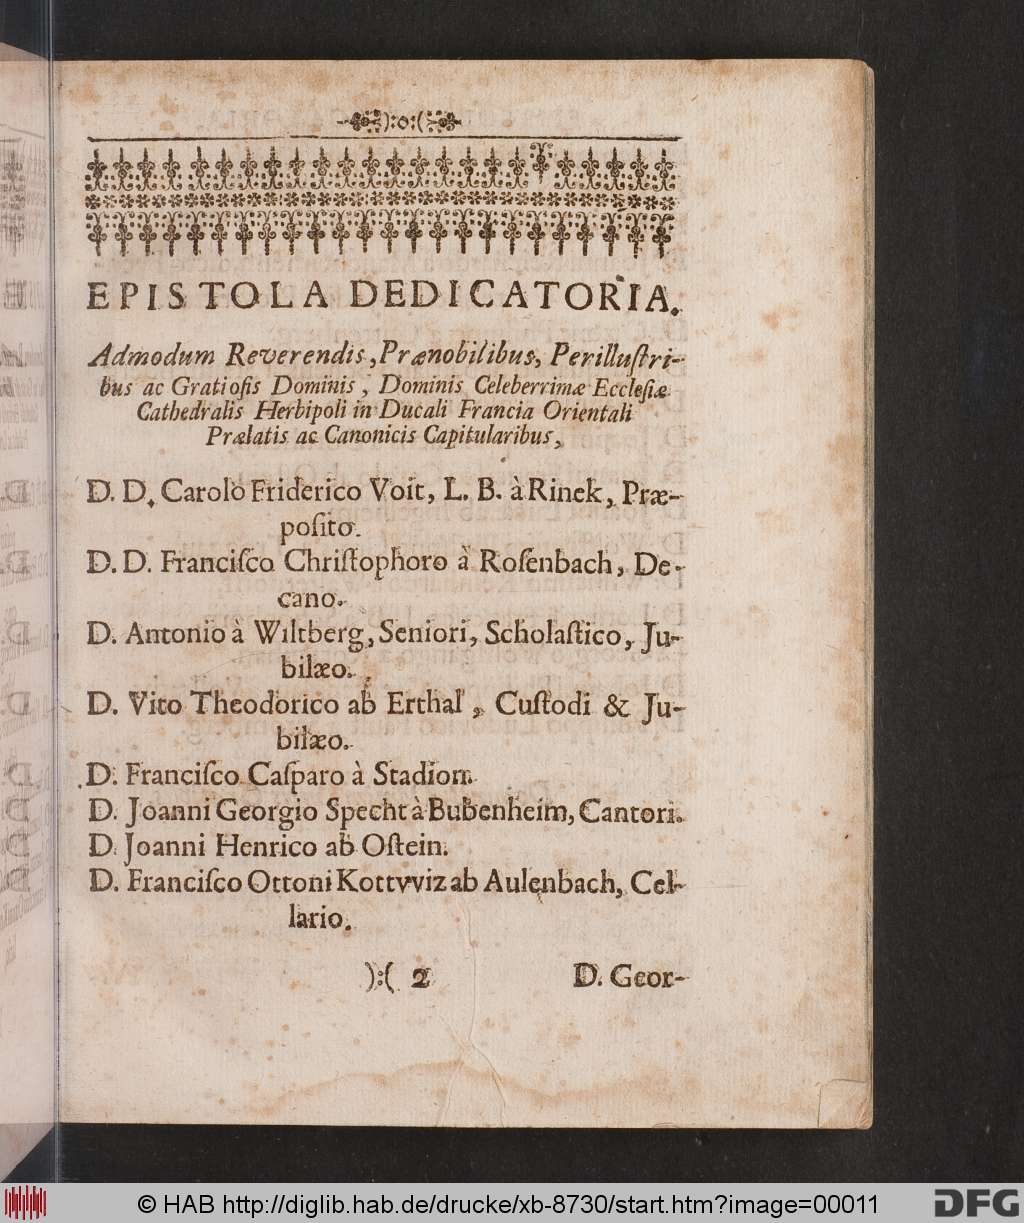 ):o:(
EPISTOLA DEDICATORIA.
Admodum Reverendis, Prænobilibus, Perilluſtri-
bus ac Gratioſis Dominis, Dominis Celeberrimæ Eccleſiæ
Cathedralis Herbipoli in Ducali Francia Orientali
Prælatis ac Canonicis Capitularibus,
D. D. Carolo Friderico Voit, L. B. à Rinek, Præ-
poſito.
D. D. Franciſco Chriſtophoro à Roſenbach, De-
cano.
D. Antonio à Wiltberg, Seniori, Scholaſtico, Ju-
bilæo.
D. Vito Theodorico ab Erthal, Cuſtodi & Ju-
bilæo.
D. Franciſco Caſparo à Stadion.
D. Joanni Georgio Specht à Bubenheim, Cantori.
D. Joanni Henrico ab Oſtein.
D. Franciſco Ottoni Kottvviz ab Aulenbach, Cel-
lario.
):( 2 D. Geor-
© HAB http://diglib.hab.de/drucke/xb-8730/start.htm?image=00011
DFG